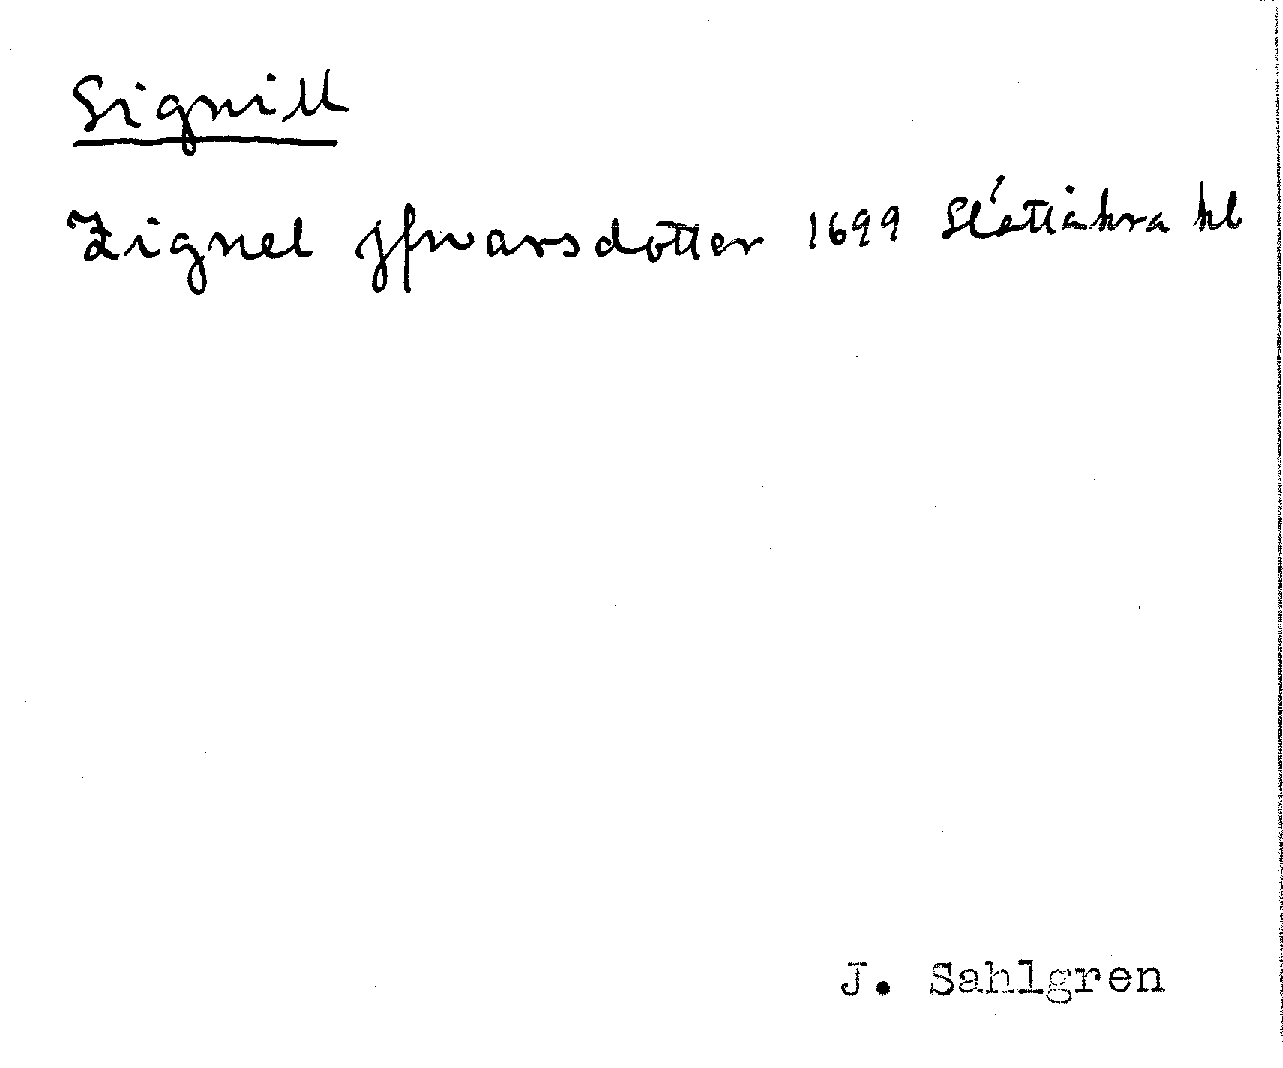 Signill
Zignel Jfwarsdotter 1699 Slättåkra kb
J. Sahlgren